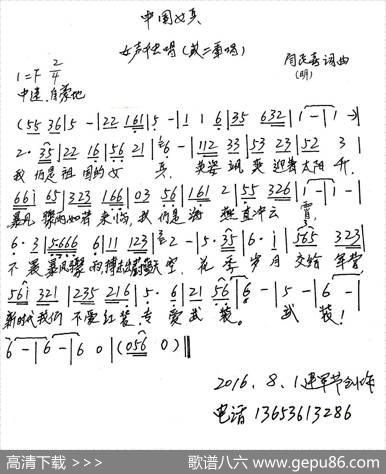 中国女兵
女声独唱(或二重唱)
1=F 2/4
闫長喜词曲
(明)
中速 自豪地
(55 36|5 -|22 161|5 -|1 1 6|35 632|1 -|1 -)|
2· 35|22 16|56 21|6 -|112 33|53 23|52 3|
我们是祖国的女兵, 英姿飒爽迎着太阳升,
66i 65|323 166|03 56|161 2|55 326|1 -|1 -|
暴风骤雨如若来临,我们是海燕直冲云霄,
6· 3|5666 6|11 123|2 -|5· 35|6· i|565 323|
不畏暴风骤雨搏击天空, 花季岁月交给军营
56i 321|235 216|5· 6|21 56|6 -|5 -|6 -|
新时代我们不爱红装,专爱武装。 武装!
6 -|6 -|6 0|(056 0)‖
2016.8.1建军节创作
电话13653613286
高清下载 >>>
歌谱八六 www.gepu86.com